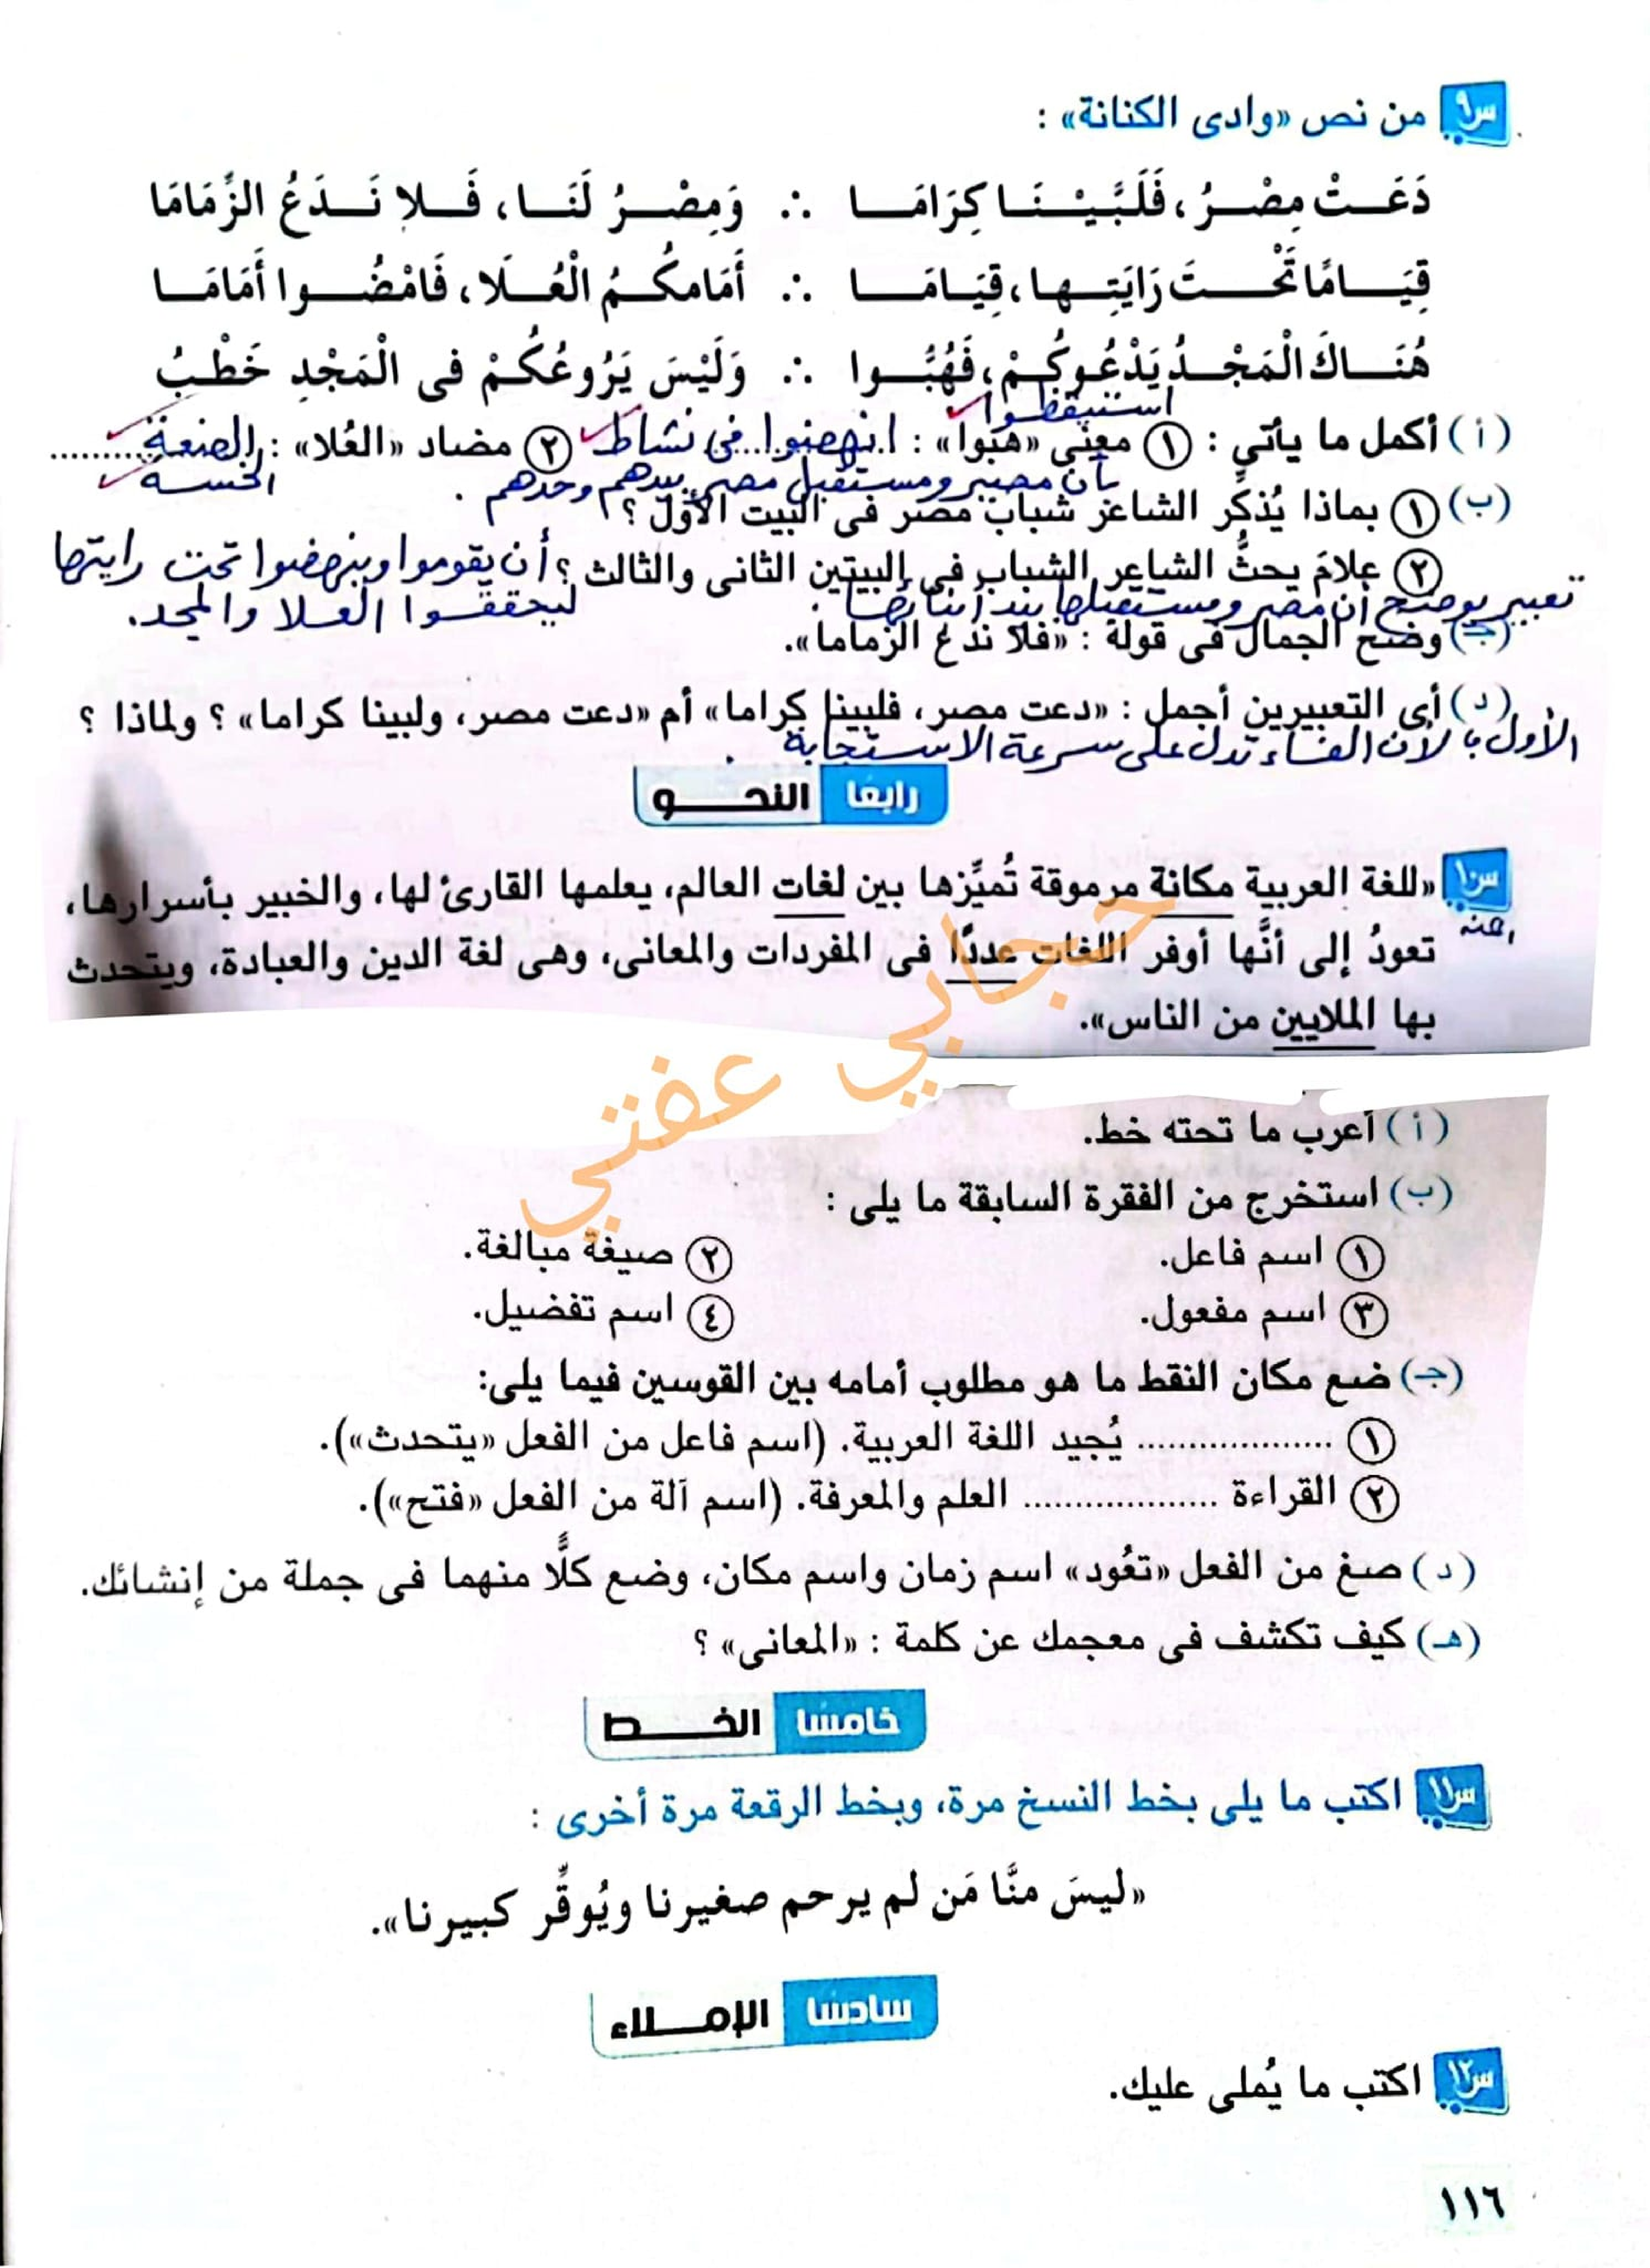 س٩ من نص «وادى الكنانة» :
دَعَتْ مِصْرُ، فَلَبَّيْنَا كِرَامَا ∴ وَمِصْرُ لَنَا، فَلا نَدَعُ الزِّمَامَا
قِيَامًا تَحْتَ رَايَتِها، قِيَامَا ∴ أَمَامكُمُ الْعُلَا، فَامْضُوا أَمَامَا
هُنَاكَ الْمَجْدُ يَدْعُوكُمْ، فَهُبُّوا ∴ وَلَيْسَ يَرُوعُكُمْ فى الْمَجْدِ خَطْبُ
استيقظوا
(أ) أكمل ما يأتى : ١ معنى «هبوا» : انهضوا فى نشاط ٢ مضاد «العُلا» : الضعة
بأن مصير ومستقبل مصر بيدهم وحدهم . الخسة
(ب) ١ بماذا يُذكِّر الشاعر شباب مصر فى البيت الأول ؟
٢ علامَ يحثُّ الشاعر الشباب فى البيتين الثانى والثالث ؟ أن يقوموا وينهضوا تحت رايتها
ليحققوا العلا والمجد.
تعبير يوضح أن مصر ومستقبلها بيد أبنائها .
(جـ) وضح الجمال فى قوله : «فلا ندع الزماما».
(د) أى التعبيرين أجمل : «دعت مصر، فلبينا كراما» أم «دعت مصر، ولبينا كراما» ؟ ولماذا ؟
الأول ؛ لأن الفاء تدل على سرعة الاستجابة .
رابعًا النحــو
س١٠ «للغة العربية مكانة مرموقة تُميِّزها بين لغات العالم، يعلمها القارئ لها، والخبير بأسرارها،
تعودُ إلى أنَّها أوفر اللغات عددًا فى المفردات والمعانى، وهى لغة الدين والعبادة، ويتحدث
بها الملايين من الناس».
حجابي عفتي
(أ) أعرب ما تحته خط.
(ب) استخرج من الفقرة السابقة ما يلى :
١ اسم فاعل. ٢ صيغة مبالغة.
٣ اسم مفعول. ٤ اسم تفضيل.
(جـ) ضع مكان النقط ما هو مطلوب أمامه بين القوسين فيما يلى:
١ .................. يُجيد اللغة العربية. (اسم فاعل من الفعل «يتحدث»).
٢ القراءة .................. العلم والمعرفة. (اسم آلة من الفعل «فتح»).
(د) صغ من الفعل «تعُود» اسم زمان واسم مكان، وضع كلًّا منهما فى جملة من إنشائك.
(هـ) كيف تكشف فى معجمك عن كلمة : «المعانى» ؟
خامسًا الخــط
س١١ اكتب ما يلى بخط النسخ مرة، وبخط الرقعة مرة أخرى :
«ليسَ منَّا مَن لم يرحم صغيرنا ويُوقِّر كبيرنا».
سادسًا الإملاء
س١٢ اكتب ما يُملى عليك.
١١٦